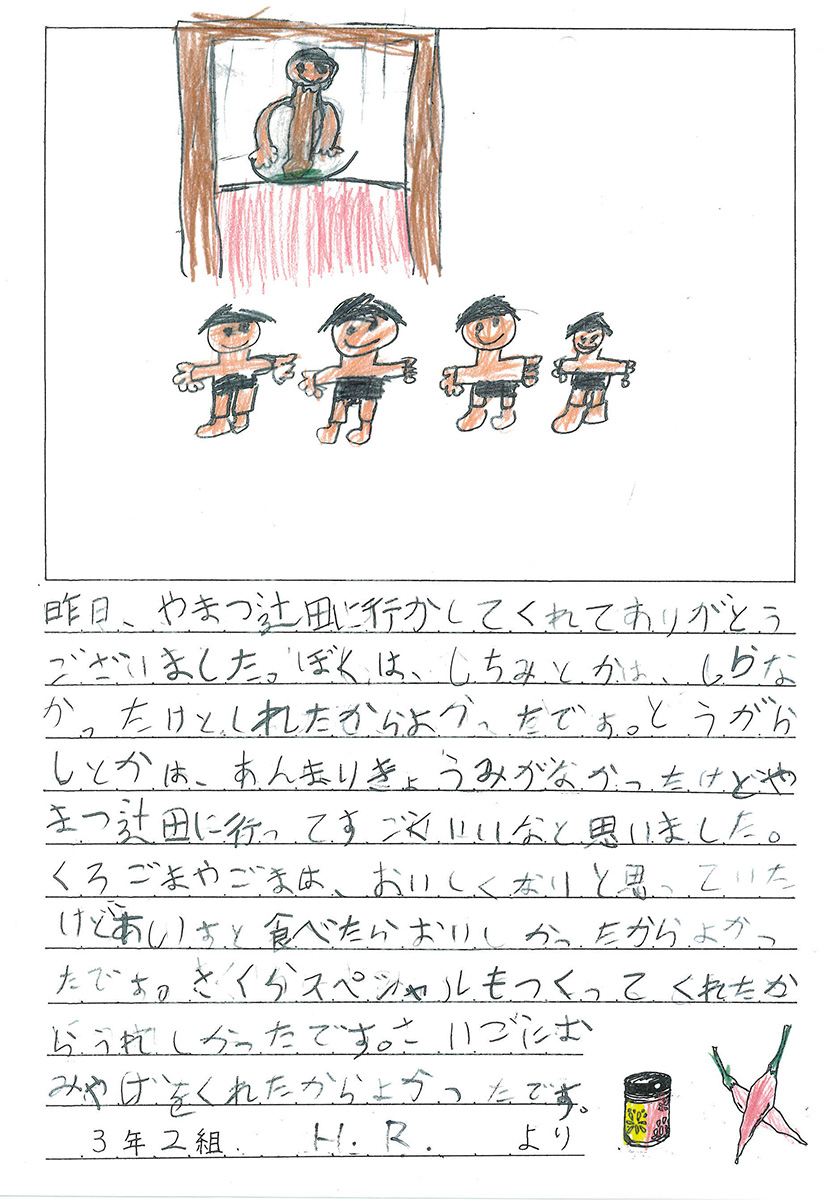 昨日、やまつ辻田に行かしてくれてありがとう
ございました。ぼくは、しちみとかは、しらな
かったけどしれたからよかったです。とうがら
しとかは、あんまりきょうみがなかったけどや
まつ辻田に行ってすごくいいなと思いました。
くろごまやごまは、おいしくなりと思っていた
けど、あじ食べたらおいしかったからよかっ
たです。さくらスペシャルもつくってくれたか
らうれしかったです。さいごにお
みやげをくれたからよかったです。
3年2組 H.R. より